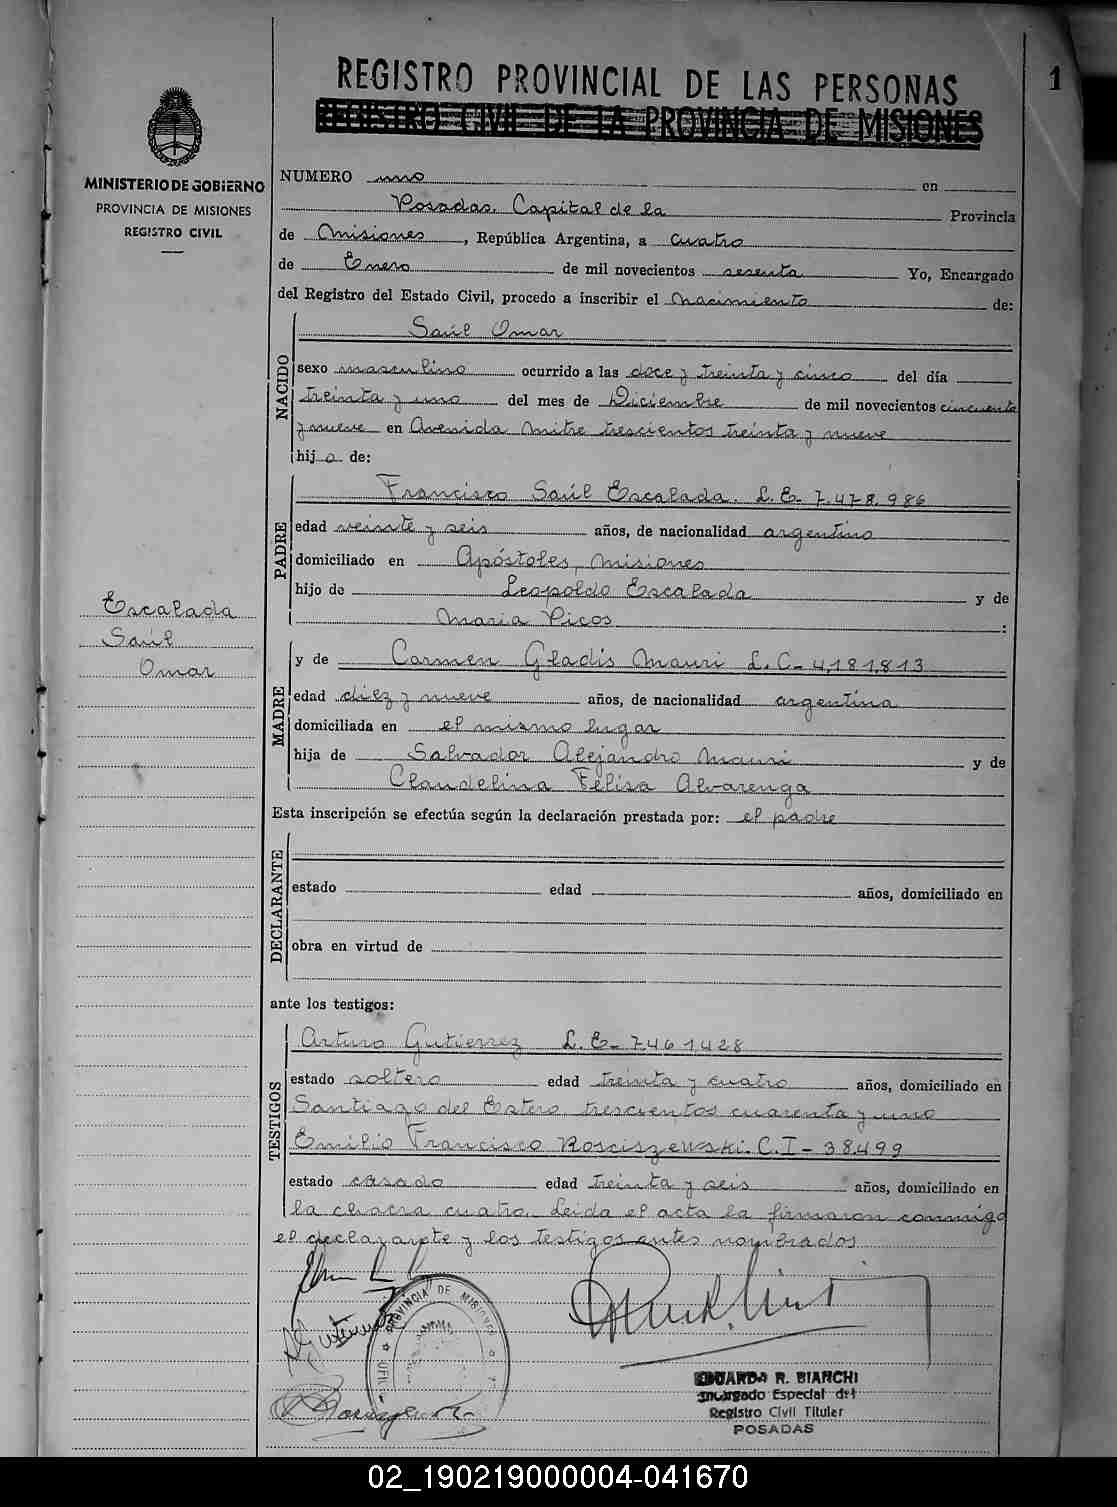 1
REGISTRO PROVINCIAL DE LAS PERSONAS
REGISTRO CIVIL DE LA PROVINCIA DE MISIONES
MINISTERIO DE GOBIERNO
PROVINCIA DE MISIONES
REGISTRO CIVIL
NUMERO uno en
Posadas, Capital de la Provincia
de Misiones, República Argentina, a cuatro
de Enero de mil novecientos sesenta Yo, Encargado
del Registro del Estado Civil, procedo a inscribir el nacimiento de:
NACIDO
Saúl Omar
sexo masculino ocurrido a las doce y treinta y cinco del día
treinta y uno del mes de Diciembre de mil novecientos cincuenta
y nueve en Avenida Mitre trescientos treinta y nueve
hij o de:
PADRE
Francisco Saúl Escalada. L.E. 7.478.986
edad veinte y seis años, de nacionalidad argentino
domiciliado en Apóstoles, Misiones
hijo de Leopoldo Escalada y de
Maria Picos :
Escalada
Saúl
Omar
MADRE
y de Carmen Gladis Mauri L.C- 4,181,813
edad diez y nueve años, de nacionalidad argentina
domiciliada en el mismo lugar
hija de Salvador Alejandro Mauri y de
Claudelina Felisa Alvarenga
Esta inscripción se efectúa según la declaración prestada por: el padre
DECLARANTE
estado edad años, domiciliado en
obra en virtud de
ante los testigos:
TESTIGOS
Arturo Gutierrez L.E- 7461428
estado soltero edad treinta y cuatro años, domiciliado en
Santiago del Estero trescientos cuarenta y uno
Emilio Francisco Rosciszewski. C.I- 38.499
estado casado edad treinta y seis años, domiciliado en
la chacra cuatro. Leida el acta la firmaron conmigo
el declarante y los testigos antes nombrados
PROVINCIA DE MISIONES
EDUARDO R. BIANCHI
Encargado Especial del
Registro Civil Titular
POSADAS
02_190219000004-041670